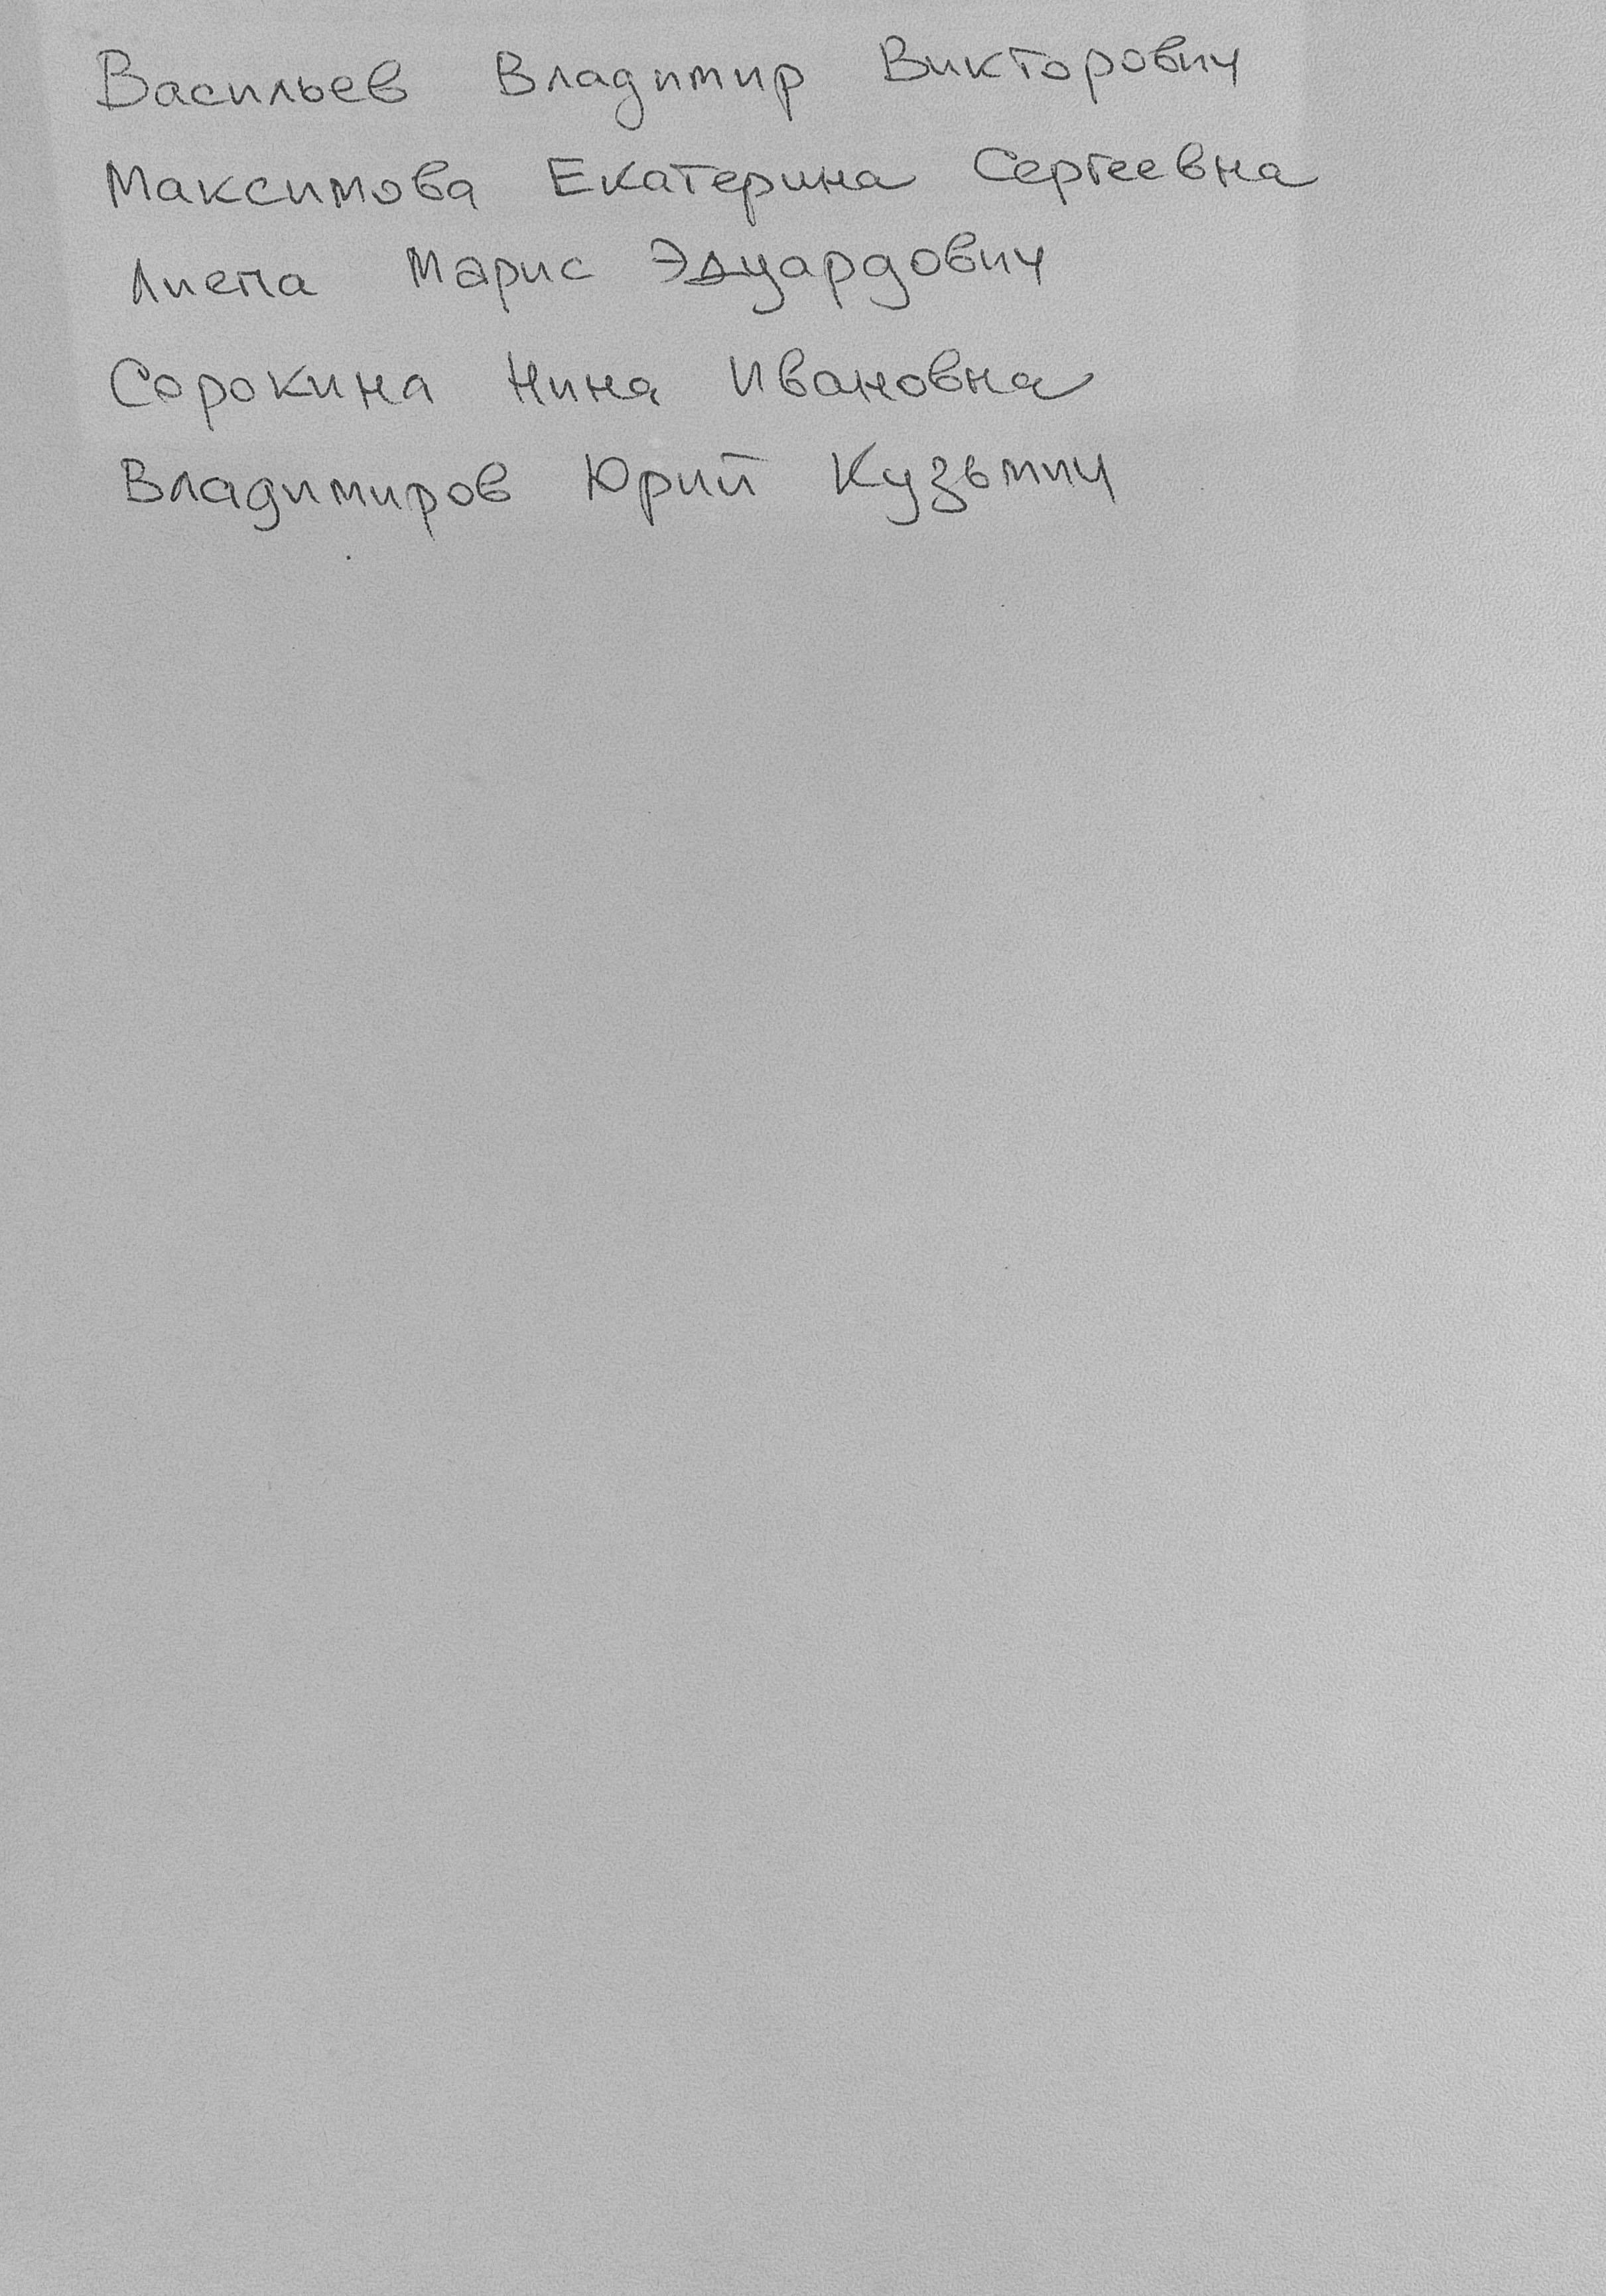 Васильев Владимир Викторович
Максимова Екатерина Сергеевна
Лиепа Марис Эдуардович
Сорокина Нина Ивановна
Владимиров Юрий Кузьмич